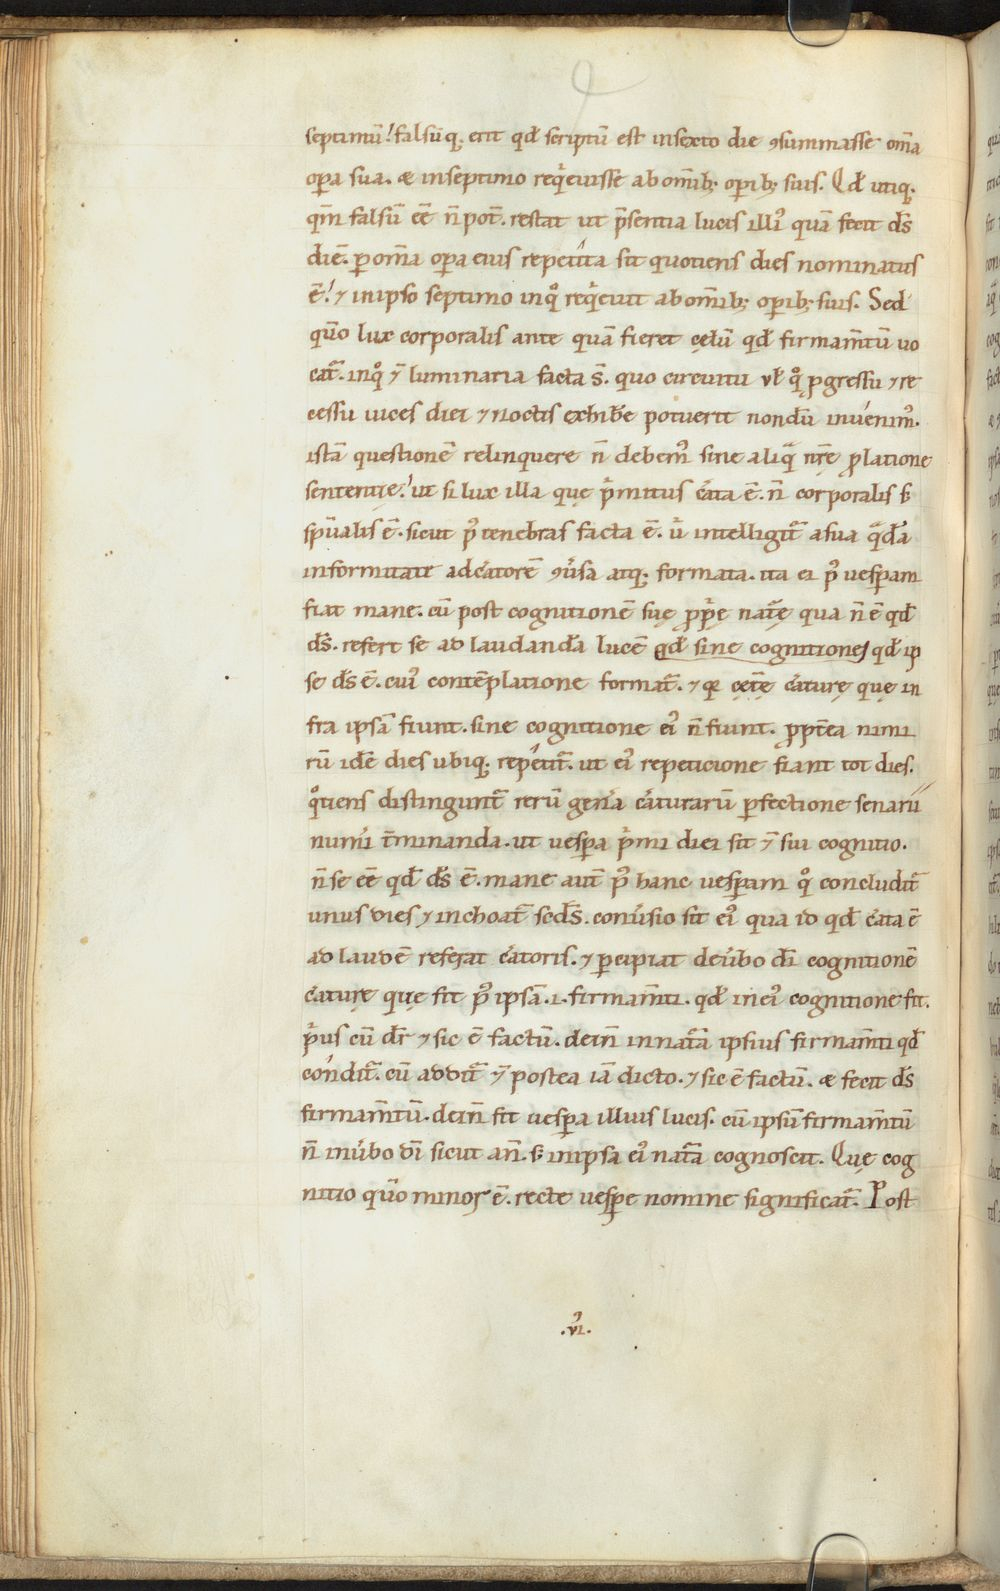 septimũ! falsũq;. erit qđ scriptũ est insexto die ꝯsummasse om̃a
oꝑa sua. æ inseptimo req̉euisse ab om̃ib; oꝑib; suis. Qđ utiq;.
qm̃ falsũ eẽ ñ pot̃. restat ut p̃sentia lucis illi᾽ quã fecit dς̃
diẽ. ꝑ om̃a oꝑa eius repetita sit quotiens dies nominatus
ẽ! ⁊ inipso septimo inqͦ reqͥeuit ab om̃ib; oꝑib; suis. Sed
qm̃o lux corporalis ante quã fieret cęlũ qđ firmam̃tũ uo
cat̃. inqͦ ⁊̃ luminaria facta s̃. quo circuitu ul̃ qͦ ꝓgressu ⁊ re
cessu uices diei ⁊ noctis exhiƀe potuerit nondũ inuenim᾽.
istã questionẽ relinquere ñ debem᾽ sine aliqͣ nr̃ę ꝓlatione
sententię! ut si lux illa quę pͥmitus c̃ata ẽ. ñ corporalis sꝫ
sp̃ualis ẽ. sicut p᾽ tenebras facta ẽ. uͥ intelligit̃ asua qͣđa
informitate adc̃atorẽ ꝯũsa atq;. formata. ita ei p᾽ uesꝑam
fiat mane. cũ post cognitionẽ suę ꝓpͥę nat̃ę qua ñ ẽ qđ
dς̃. refert se ad laudandã lucẽ qđ sine cognitione qđ ip
se dς̃ ẽ. cui᾽ contẽplatione format̃. ⁊ qꝛ cęt̃ę c̃aturę quę in
fra ipsã fiunt. sine cognitione ei᾽ ñ fiunt. ꝓpt̃ea nimi
rũ idẽ dies ubiq;. repetit̃. ut ei᾽ repeticione fiant tot dies.
qͦtiens distingunt̃ rerũ geña c̃aturarũ ꝑfectione senarii
num̃i t̃minanda. ut uesꝑa pͥmi diei sit ⁊̃ sui cognitio.
ñ se eẽ qđ dς̃ ẽ. mane aut̃ p᾽ hanc uesꝑam qͦ concludit̃
unus dies ⁊ inchoat̃ sed̃s. conũsio sit ei᾽ qua id qđ c̃ata ẽ
ad laudẽ referat c̃atoris. ⁊ ꝑcipiat deũbo di̅ cognitionẽ
c̃aturę quę fit p᾽ ipsã. .i. firmam̃ti. qđ inei᾽ cognitione fit.
pͥus cũ dr̃ ⁊ sic ẽ factũ. dein̄ innat̃a ipsius firmam̃ti qđ
condit̃. cũ addit̃ ⁊̃ postea iã dicto. ⁊ sic ẽ factũ. æ fecit dς̃
firmam̃tũ. dein̄ fit uesꝑa illius lucis. cũ ipsũ firmam̃tũ
ñ inũbo di̅ sicut an̄. sꝫ inipsa ei᾽ nat̃a cognoscit. Quę cog
nitio qm̃o minor ẽ. recte uesꝑe nomine significat̃. Post
.vi᾽.